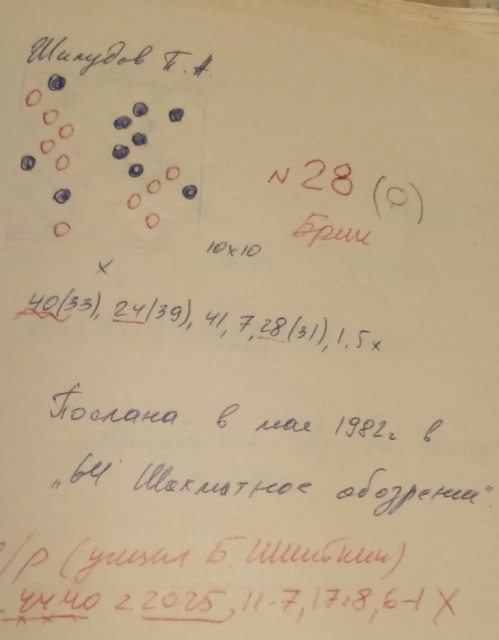 Шилудов П. А.
№ 28 (0)
Брии
10x10
x
40(33), 24(39), 41, 7, 28(31), 1.5x
Послана в мае 1982г в
„64 Шахматное обозрение".
(учил Б. Шиткин)
4440 2.2025, 11-7, 17:8, 6-1 X